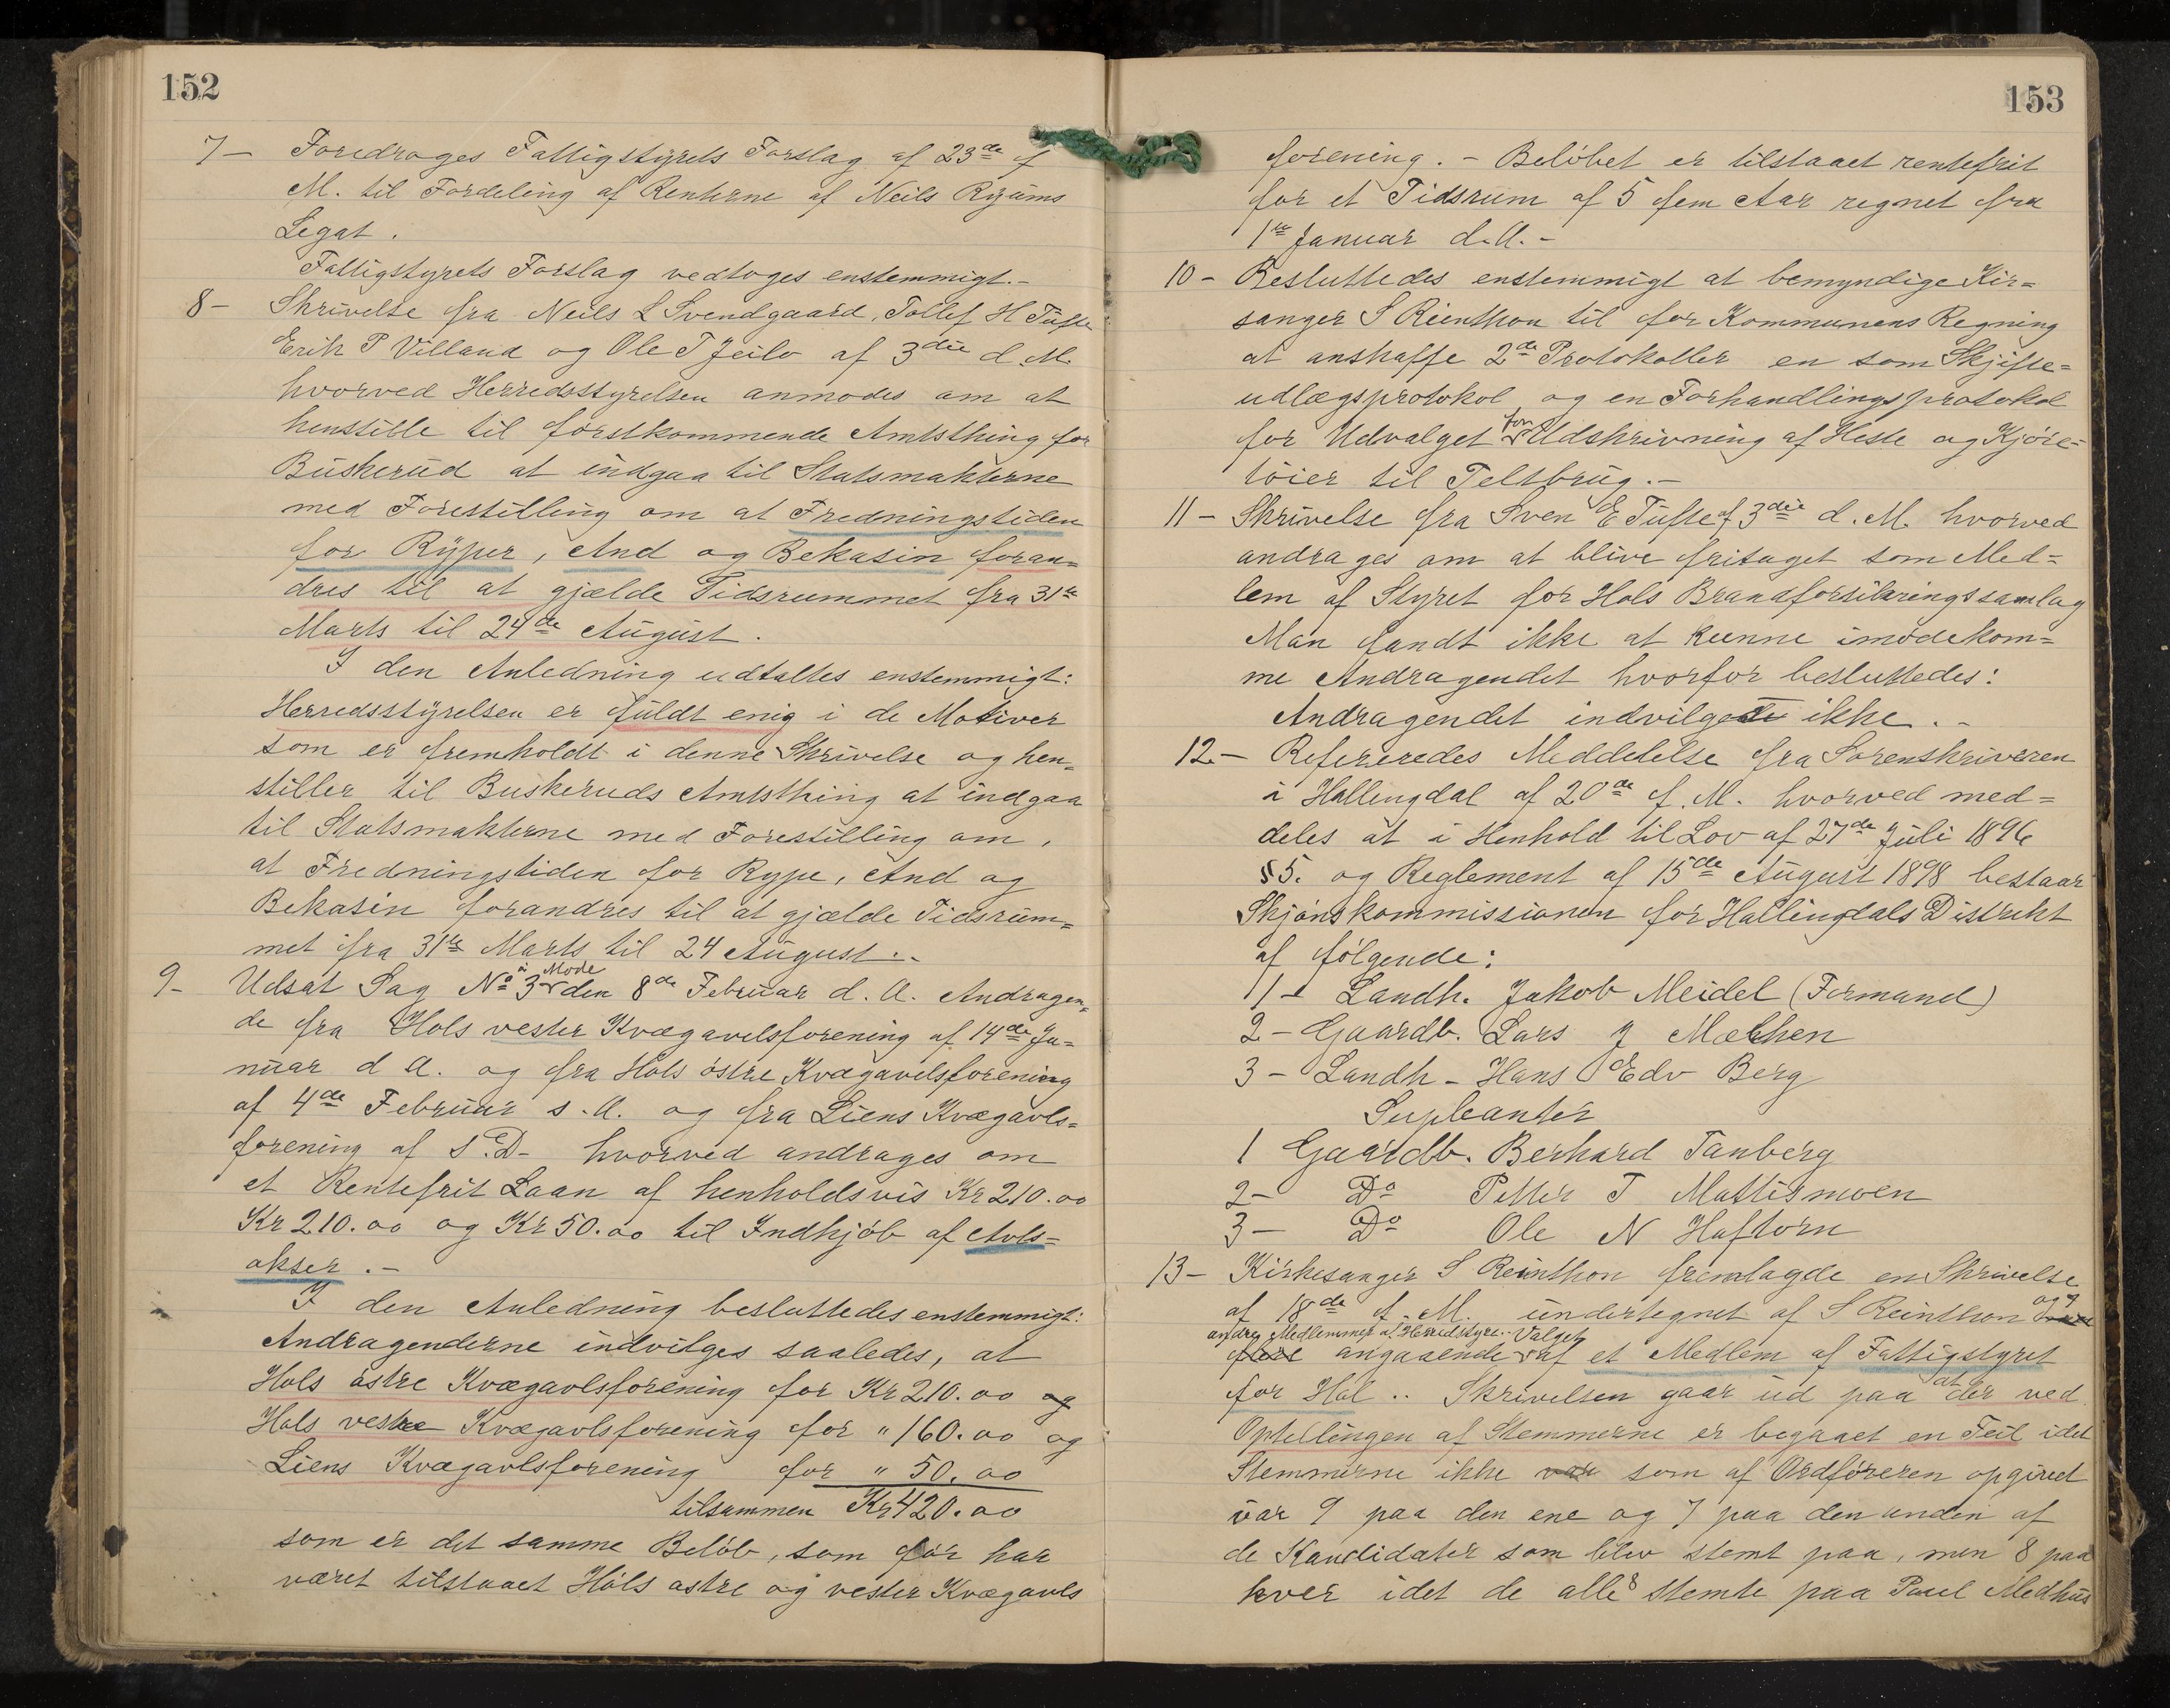 152
7 – Foredroges Fattigstyrets Forslag af 23de f
M. til Fordeling af Renterne af Neils Ryjums
Legat.
Fattigstyrets Forslag vedtoges enstemmigt.–
8 – Skrivelse fra Neils L Svendgaard, Tollef H Tufte
Erik P Villand og Ole T Jeilo af 3die d.M.
hvorved Herredsstyrelsen anmodes om at
henstille til førstkommende Amtsthing for
Buskerud at indgaa til Statsmakterne
med Forestilling om at Fredningstiden
for Ryper, And og Bekasin foran=
dres til at gjælde Tidsrummet fra 31te
Marts til 24de August.
I den Anledning udtaltes enstemmigt:
Herredsstyrelsen er fuldt enig i de Motiver
som er fremholdt i denne Skrivelse og hen=
stiller til Buskeruds Amtsthing at indgaa
til Statsmakterne med Forestilling om,
at Fredningstiden for Rype, And og
Bekasin forandres til at gjælde Tidsrum=
met fra 31te Marts til 24 August.–
9 – Udsat Sag No 3 i Møde den 8de Februar d. A. Andragen=
de fra Hols vestre Kvægavelsforening af 14de Ja=
nuar d A. og fra Hols østre Kvægavelsforening
af 4de Februar s.A. og fra Liens Kvægavls=
forening af s.D– hvorved andrages om
et Rentefrit Laan af henholdsvis Kr 210.00
Kr 210.00 og Kr 50.00 til Indkjøb af Avls=
okser.–
I den Anledning besluttedes enstemmigt:
Andragenderne indvilges saaledes, at
Hols østre Kvægavlsforening for Kr 210.00 og
Hols vestre Kvægavlsforening for " 160.00 og
Liens Kvægavlsforening for " 50.00
tilsammen Kr 420.00
som er det samme Beløb, som før har
været tilstaaet Hols østre og vestre Kvægavls
153
forening. – Beløbet er tilstaaet rentefrit
for et Tidsrum af 5 fem Aar regnet fra
1ste Januar d.A.–
10 – Besluttedes enstemmigt at bemyndige Kir=
sanger S Reinthon til for Kommunens Regning
at anskaffe 2de Protokoller en som Skjifte=
udlægsprotokol og en Forhandlingsprotokol
for Udvalget for Udskrivning af Heste og Kjøre=
tøier til Feltbrug.–
11 – Skrivelse fra Sven E Tufte af 3die d.M. hvorved
andrages om at blive fritaget som Med=
lem af Styret for Hols Brandforsikringssamlag
Man fandt ikke at kunne imødekom=
me Andragendet hvorfor besluttedes:
Andragendet indvilgedes ikke.–
12.– Refereredes Meddelelse fra Sorenskriveren
i Hallingdal af 20de f.M. hvorved med=
deles at i Henhold til Lov af 27de Juli 1896
§ 5. og Reglement af 15de August 1898 bestaar
Skjønskommissionen for Hallingdals Distrikt
af følgende:
1 – Landh. Jakob Meidel (Formand)
2 – Gaardb. Lars J Mæhen
3 – Landh – Hans Edv Berg
Supleanter
1 Gaardb. Berhard Tanberg
2 – Do Petter T Mattismoen
3 – Do Ole N Haftorn
13 – Kirkesanger S Reinthon fremlagde en Skrivelse
af 18de f.M. undertegnet af S Reinthon og 7
andre Medlemmer af Herredstyre.. flere angaaende Valget af et Medlem af Fattigstyret
for Hol.. Skrivelsen gaar ud paa at der ved
Optellingen af Stemmerne er begaaet en Feil idet
Stemmerne ikke var som af Ordføreren opgivet
var 9 paa den ene og 7 paa den anden af
de Kandidater som blev stemt paa, men 8 paa
hver idet de alle 8 stemte paa Paul Medhus